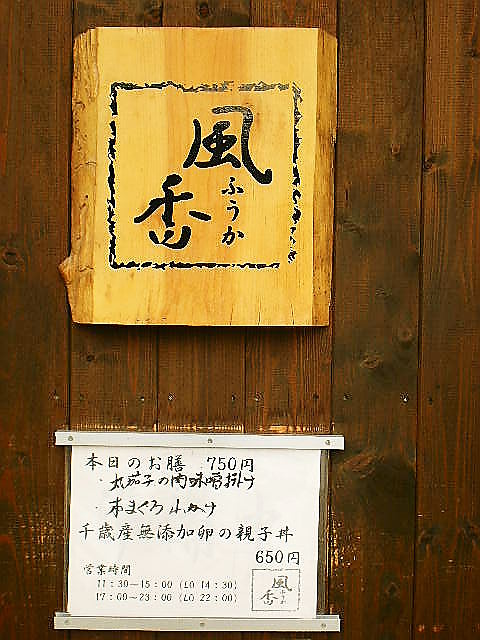 風香
ふうか
本日のお膳 750円
・丸茄子の肉味噌掛け
・本まぐろ山かけ
千歳産無添加卵の親子丼
650円
営業時間
11:30〜15:00 (LO 14:30)
17:00〜23:00 (LO 22:00)
風香
ふうか